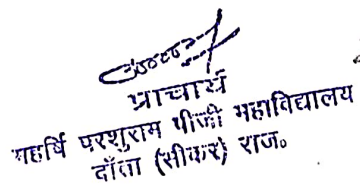 प्राचार्य
महर्षि परशुराम पीजी महाविद्यालय
दाँता (सीकर) राज०